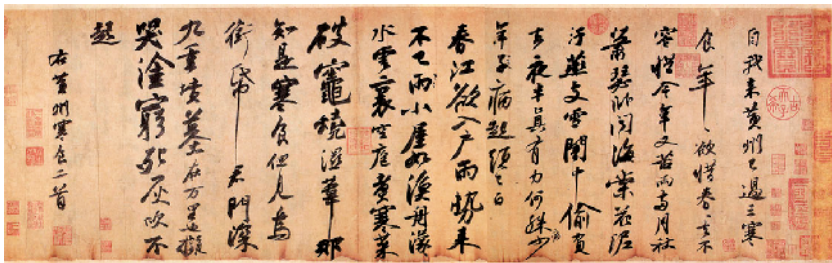 自我来黄州已過三寒
食年〻欲惜春〻去不
容惜今年又苦雨兩月秋
蕭瑟卧聞海棠花泥
汙燕支雪闇中偷負
去夜半真有力何殊少
年子病起頭已白
春江欲入户雨勢来
不已雨小屋如漁舟濛〻
水雲裏空庖煮寒菜
破竈燒溼葦那
知是寒食但見烏
銜帋君門深
九重墳墓在万里也擬
哭塗窮死灰吹不
起
右黄州寒食二首